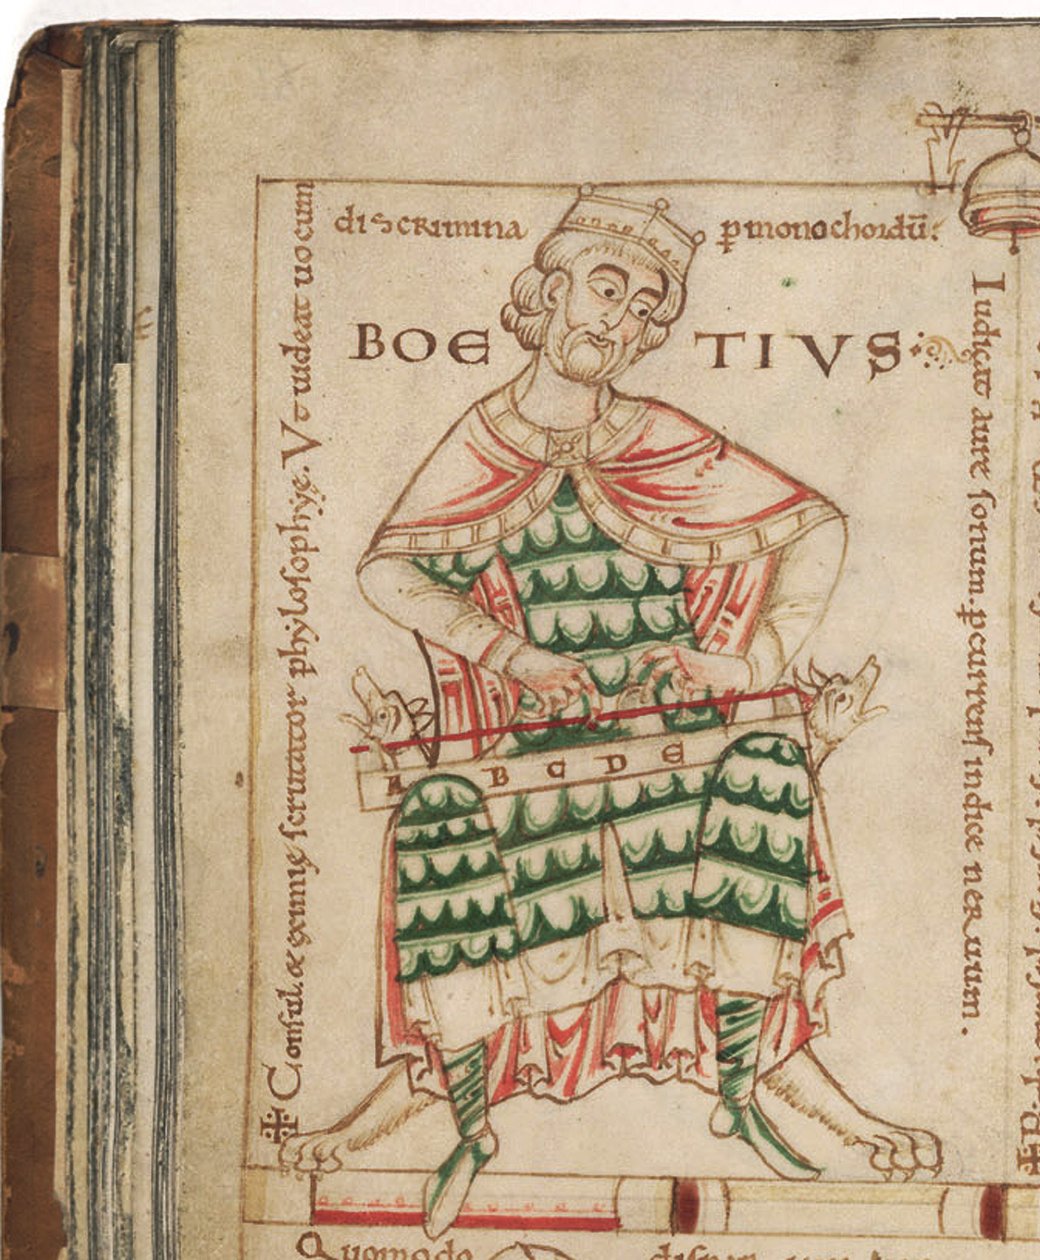 ✠ Consul. & eximię scrutator phylosophyę. Vt uideat uocum
discrimina p̱ monochordū:
BOETIVS
Iudicat aure sonum. p̱currens indice neruum.
A B C D E
Quomodo